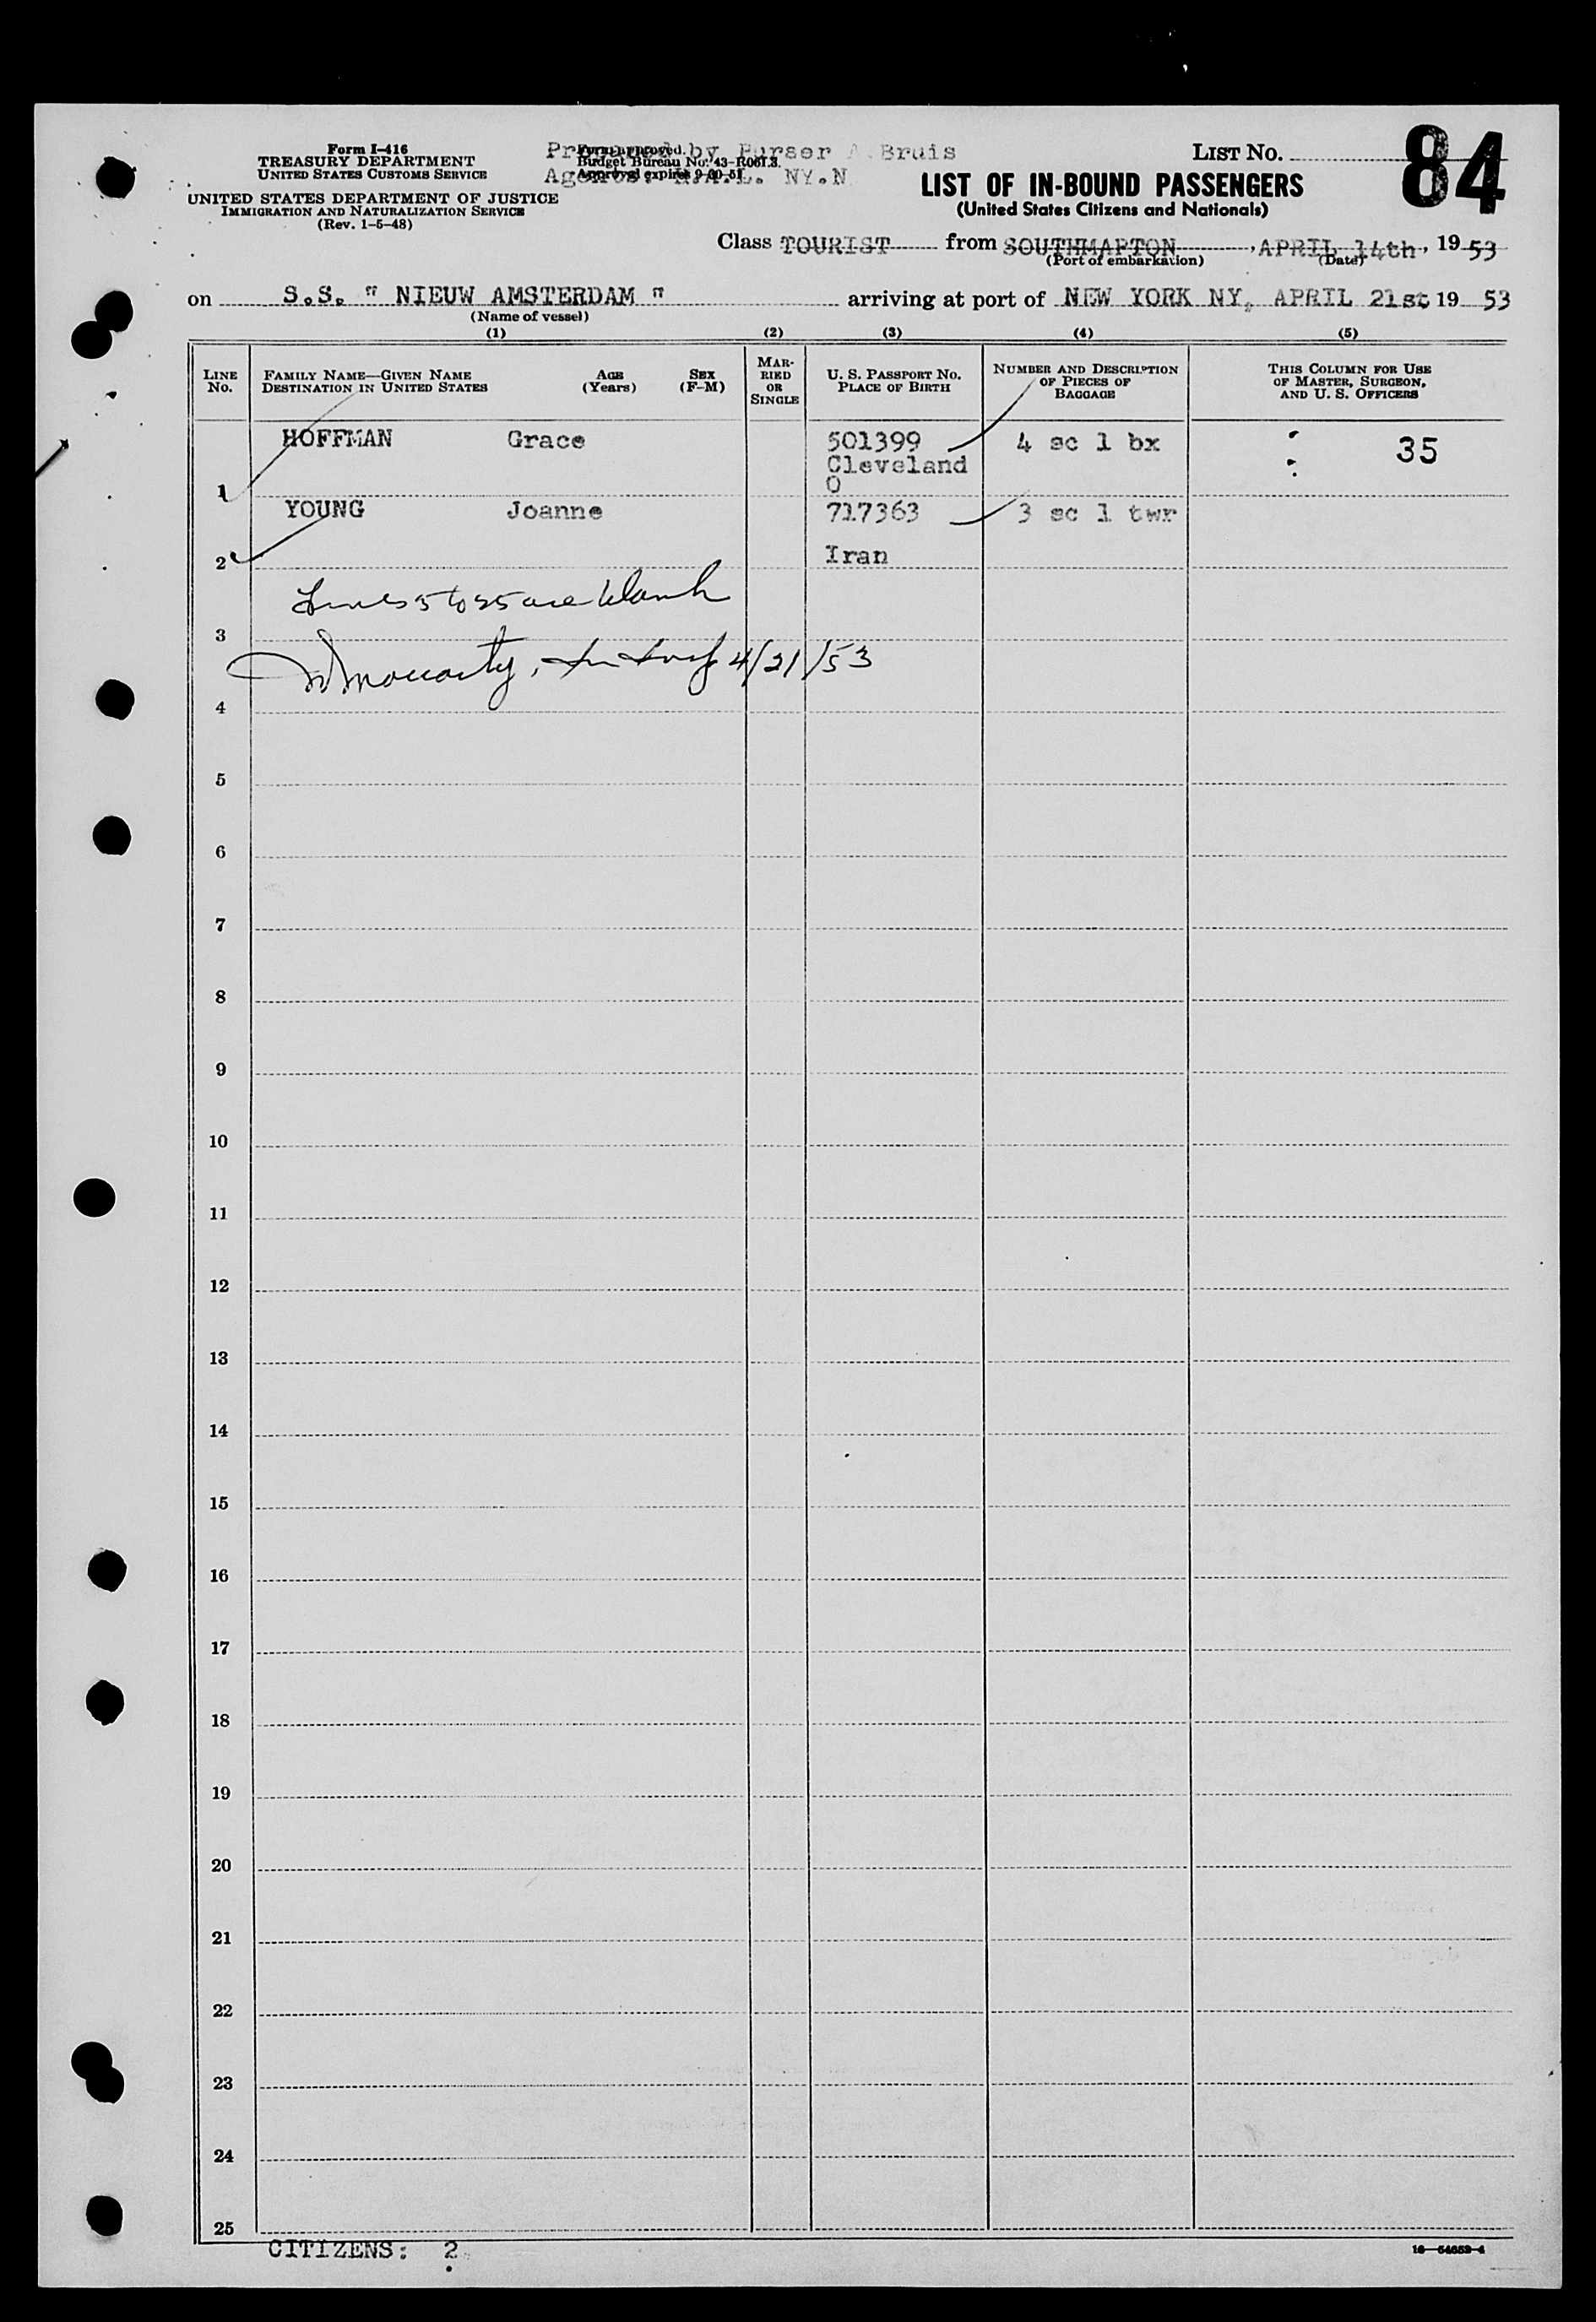 Form I-416
TREASURY DEPARTMENT
UNITED STATES CUSTOMS SERVICE
UNITED STATES DEPARTMENT OF JUSTICE
IMMIGRATION AND NATURALIZATION SERVICE
(Rev. 1-5-48)
Prepared by Purser A. Bruis
Form approved.
Budget Bureau No. 43-R061.3.
Approval expires 9-30-51
NY.N
LIST NO. 84
LIST OF IN-BOUND PASSENGERS
(United States Citizens and Nationals)
Class TOURIST from SOUTHMAPTON, APRIL 14th, 19 53
(Port of embarkation) (Date)
on S.S. " NIEUW AMSTERDAM " arriving at port of NEW YORK NY, APRIL 21st 19 53
(Name of vessel)
(1) (2) (3) (4) (5)
LINE NO.
FAMILY NAME—GIVEN NAME
DESTINATION IN UNITED STATES
AGE (Years)
SEX (F-M)
MARRIED OR SINGLE
U. S. PASSPORT NO.
PLACE OF BIRTH
NUMBER AND DESCRIPTION
OF PIECES OF
BAGGAGE
THIS COLUMN FOR USE
OF MASTER, SURGEON,
AND U. S. OFFICERS
HOFFMAN Grace 501399 4 sc 1 bx 35
Cleveland
1 O
YOUNG Joanne 717363 3 sc 1 twr
2 Iran
Lines 3 to 25 are blank
3
4/21/53
4
5
6
7
8
9
10
11
12
13
14
15
16
17
18
19
20
21
22
23
24
25
CITIZENS: 2
16—54652-4